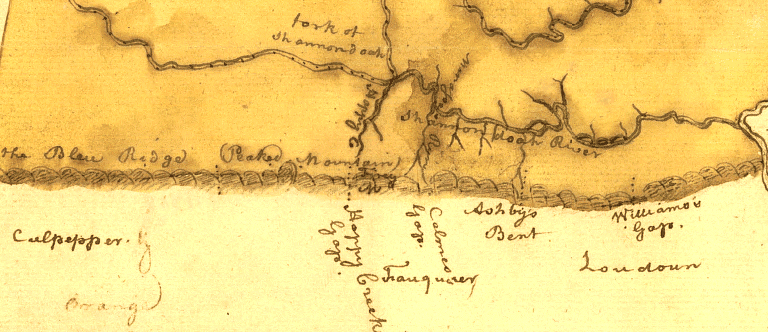 fork of
Shannondoah
Happy C
Shannondoah River
the Bleu Ridge
(Peaked Mountain)
Happy Creek
Gap.
Calmes
Gap.
Ashbys
Bent
Williams's
Gap.
Culpepper.
Fauquier
Loudoun
Orange